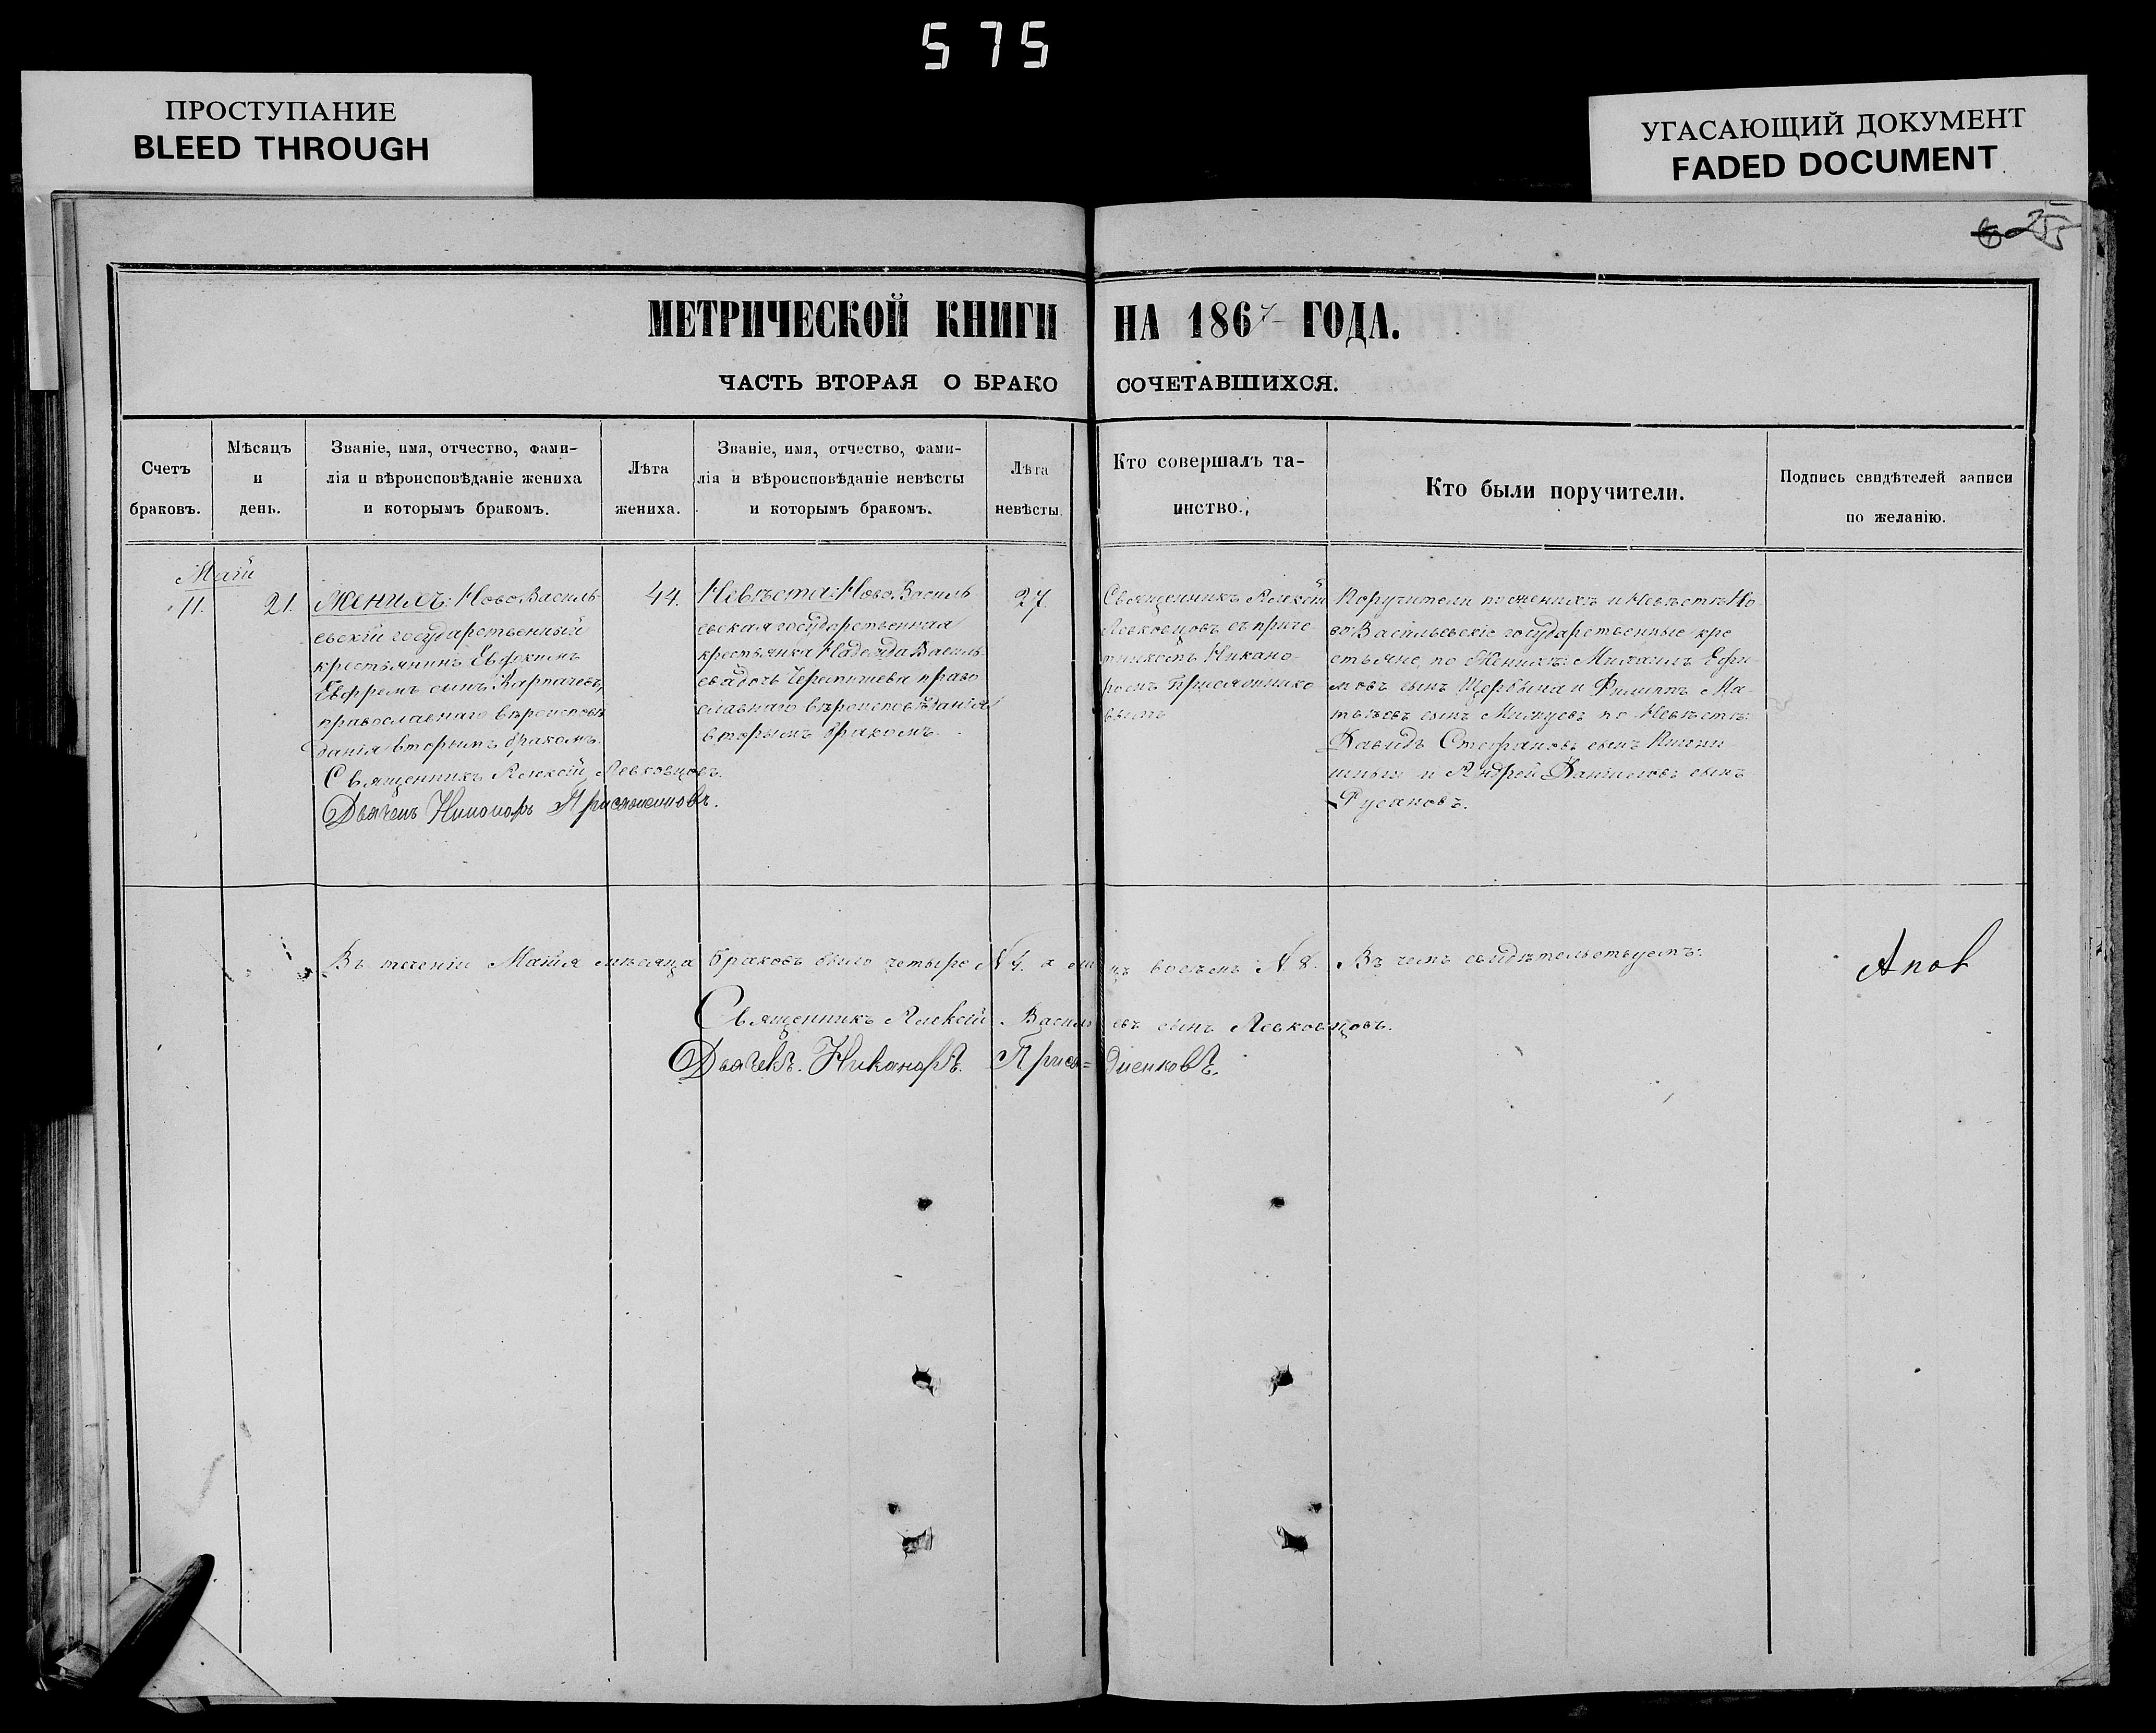 575
ПРОСТУПАНИЕ
BLEED THROUGH
УГАСАЮЩИЙ ДОКУМЕНТ
FADED DOCUMENT
МЕТРИЧЕСКОЙ КНИГИ НА 1867 ГОДА.
ЧАСТЬ ВТОРАЯ О БРАКОСОЧЕТАВШИХСЯ.
Счетъ
браковъ.
Мѣсяцъ
и
день.
Званіе, имя, отчество, фами-
лія и вѣроисповѣданіе жениха
и которымъ бракомъ.
Лѣта
жениха.
Званіе, имя, отчество, фами-
лія и вѣроисповѣданіе невѣсты
и которымъ бракомъ.
Лѣта
невѣсты.
Кто совершалъ та-
инство.
Кто были поручители.
Подпись свидѣтелей записи
по желанію.
Май
11.
21.
Женихъ: Ново Василь-
евскій государственный
крестьянинъ Евфимъ
Ефремъ сынъ Карпачевъ,
православнаго вѣроисповѣ
данія вторымъ бракомъ.
Священникъ Алексій Левковцовъ.
Дьячекъ Никоноръ
44.
Невѣста: Ново Василь
евская государственная
крестьянка Надежда Василь
ева дочь православнаго вѣроисповѣданія
вторымъ бракомъ.
27
Священникъ Алексѣй
Левковцовъ съ приче-
тникомъ Никано-
ромъ
Поручители по женихѣ и Невѣстѣ Но
во Васильевскіе государственные кре
стьяне, по Женихѣ: Михаилъ Ефи-
мовъ сынъ Щербина и Филиппъ Ма-
твѣевъ сынъ по Невѣстѣ:
Давидъ Стефановъ сынъ
и Андрей Даниловъ сынъ
Русановъ.
Въ теченіи Маія мѣсяца браковъ было четыре N 4. а лицъ восемь N 8. Въ чемъ свидѣтельствуемъ:
Священникъ Алексій Васильевъ сынъ Левковцовъ.
Дьячекъ Никаноръ